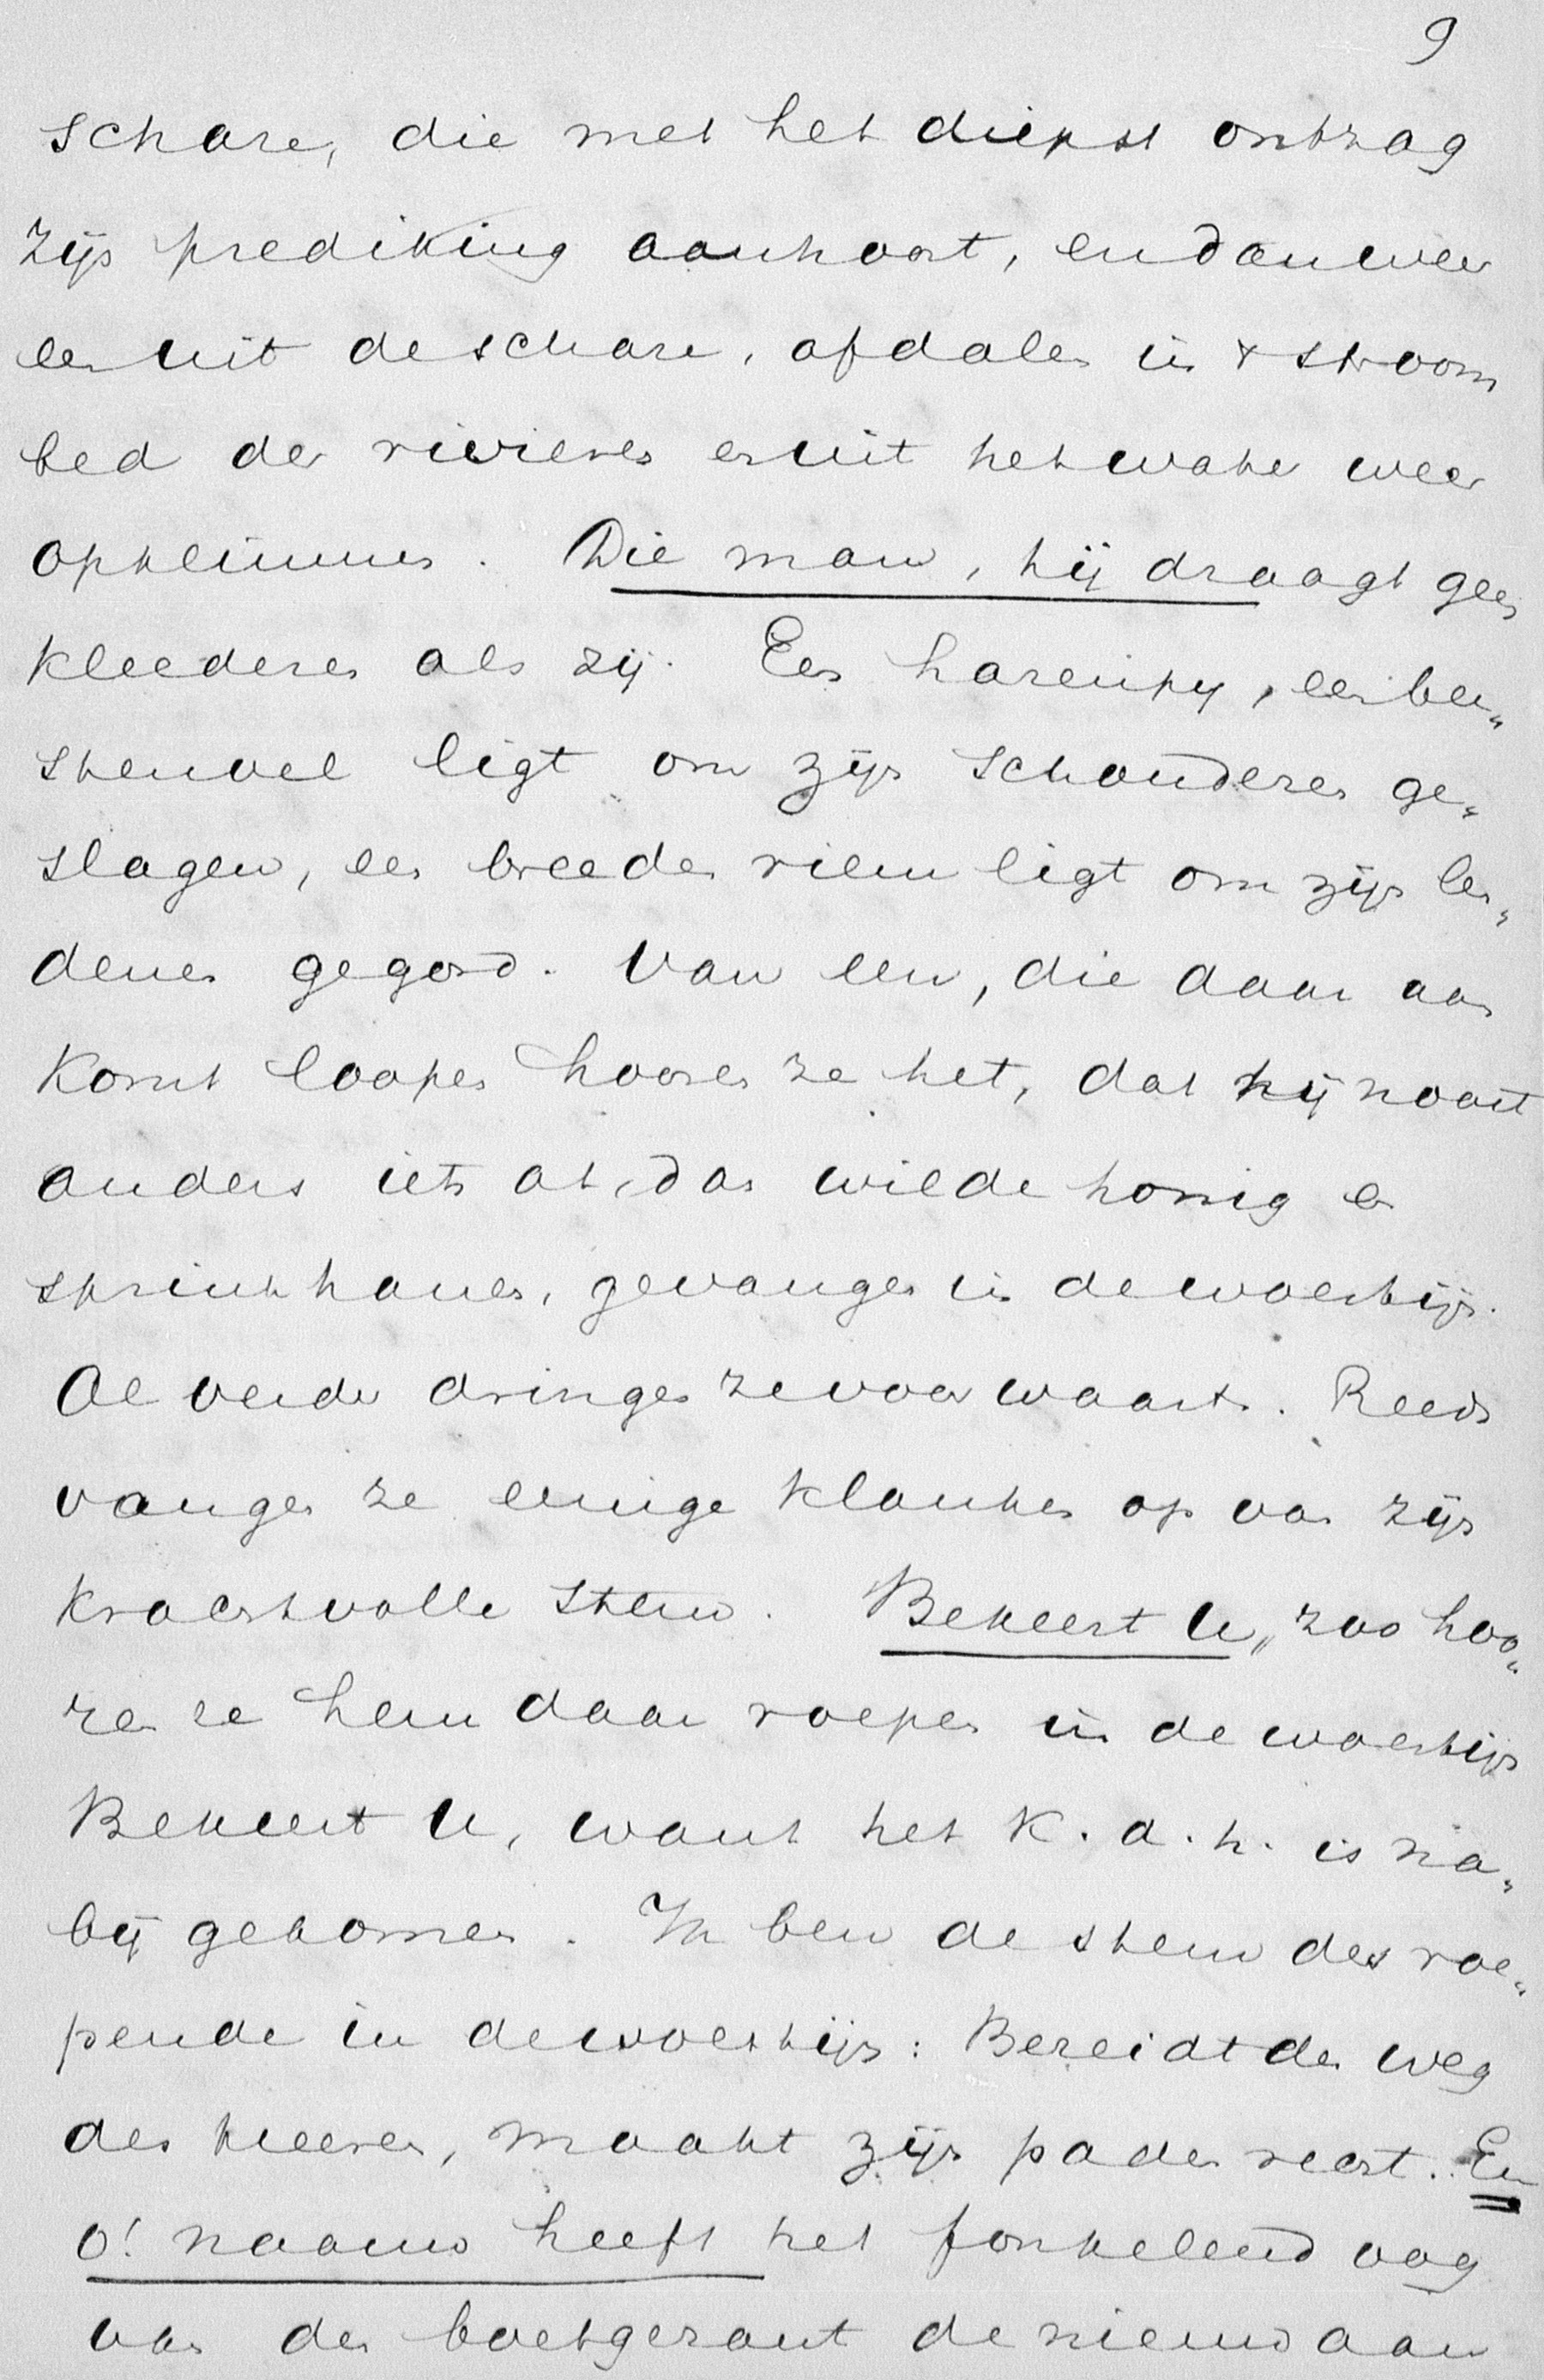 9
schare, die met het diepst ontzag
zijn prediking aanhoort, en dan weer
een uit de schare, afdalen in 't stroom
bed der rivieren en uit het water weer
opklimmen. Die man, hij draagt geen
kleederen als zij. Een harenpij, een bee„
stenvel ligt om zijn schouderen ge„
slagen, een breede riem ligt om zijn len„
denen gegord. Van een, die daar aan
komt loopen hooren ze het, dat hij nooit
anders iets at, dan wilde honig en
sprinkhanen, gevangen in de woestijn.
Al verder dringen ze voorwaarts. Reeds
vangen ze eenige klanken op van zijn
krachtvolle stem. Bekeert U„ zoo hoo„
ren ze hem daar roepen in de woestijn
Bekeert U, want het K. d. h. is na„
bij gekomen. Ik ben de stem des roe„
pende in de woestijn: Bereidt den weg
des heeren, maakt zijn paden recht. En
o! naauw heeft het fonkelend oog
van den boetgezant de nieuw aan